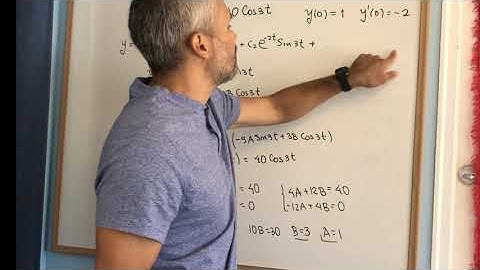 40 Cos3t y(0) = 1 y'(0) = -2
y = + C₂e⁻²ᵗ Sin3t +
3t
3B Cos3t
(-9A Sin3t + 3B Cos3t)
) = 40 Cos3t
= 40 4A + 12B = 40
= 0 -12A + 4B = 0
10B = 30 B = 3 A = 1